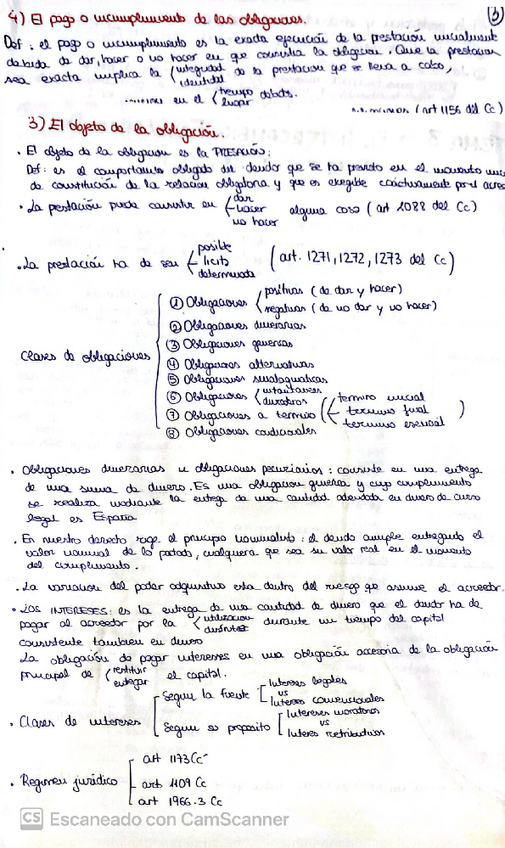 4) El pago o incumplimiento de las obligaciones.
(3)
Def: el pago o incumplimiento es la exacta ejecución de la prestación inicialmente
debida de dar, hacer o no hacer en que consistía la obligación. Que la prestación
sea exacta implica la integridad de la prestación que se lleva a cabo,
identidad
en el tiempo debido.
lugar
(art 1156 del Cc)
3) El objeto de la obligación.
· El objeto de la obligación es la PRESTACIÓN:
Def: es el comportamiento obligado del deudor que se ha previsto en el momento
de constitución de la relación obligatoria y que es exigible coactivamente por el
· La prestación puede consistir en dar alguna cosa (art 1088 del Cc)
hacer
no hacer
· La prestación ha de ser posible (art. 1271, 1272, 1273 del Cc)
lícita
determinada
Clases de obligaciones
① Obligaciones positivas (de dar y hacer)
negativas (de no dar y no hacer)
② Obligaciones dinerarias
③ Obligaciones genéricas
④ Obligaciones alternativas
⑤ Obligaciones sinalagmáticas
⑥ Obligaciones instantáneas
duraderas
⑦ Obligaciones a término (término inicial
término final
término esencial)
⑧ Obligaciones condicionales
· Obligaciones dinerarias u obligaciones pecuniarias: consiste en una entrega
de una suma de dinero. Es una obligación genérica y cuyo cumplimiento
se realiza mediante la entrega de una cantidad adeudada en dinero de curso
legal es España
· En nuestro derecho rige el principio nominalista: el deudo cumple entregando el
valor nominal de lo pactado, cualquiera que sea su valor real en el momento
del cumplimiento.
· La variación del poder adquisitivo esta dentro del riesgo que asume el acreedor.
· LOS INTERESES: es la entrega de una cantidad de dinero que el deudor ha de
pagar al acreedor por la utilización durante un tiempo del capital
disfrute
consistente también en dinero
La obligación de pagar intereses en una obligación accesoria de la obligación
principal de restituir el capital.
entregar
· Clases de intereses
Según la fuente
Intereses legales
vs
Intereses convencionales
Según su propósito
Intereses moratorios
vs
Interes retributivos
· Régimen jurídico
art 1173 Cc
art 1109 Cc
art 1966.3 Cc
CS Escaneado con CamScanner